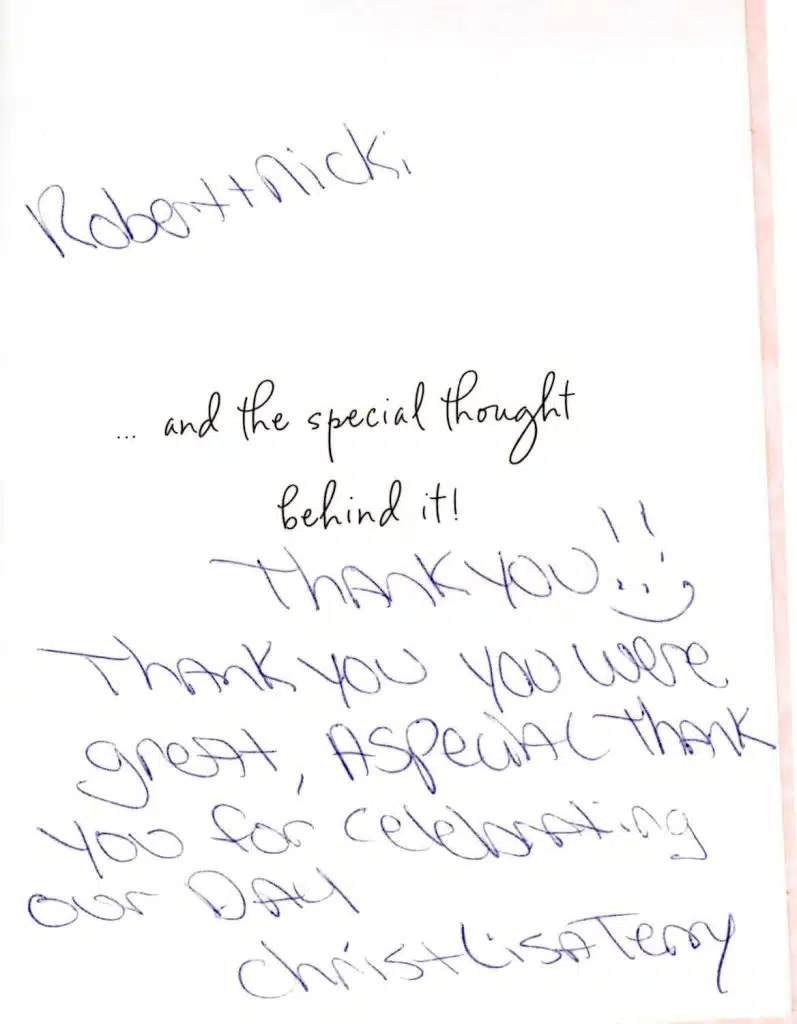 Robert + Nick,
... and the special thought
behind it!
Thank you!! :)
Thank you you were
great, A special thank
you for celebrating
our Day
Chris + Lisa Terry